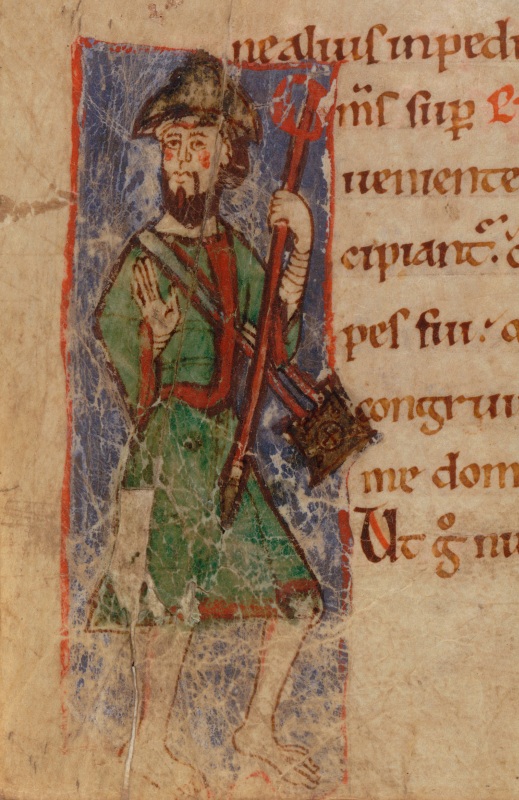 ne alius inpedi
m̄s sup̄
ueniente
cipiant᷒.
pes sui.
congrui
me dom
Ut gͦ nu